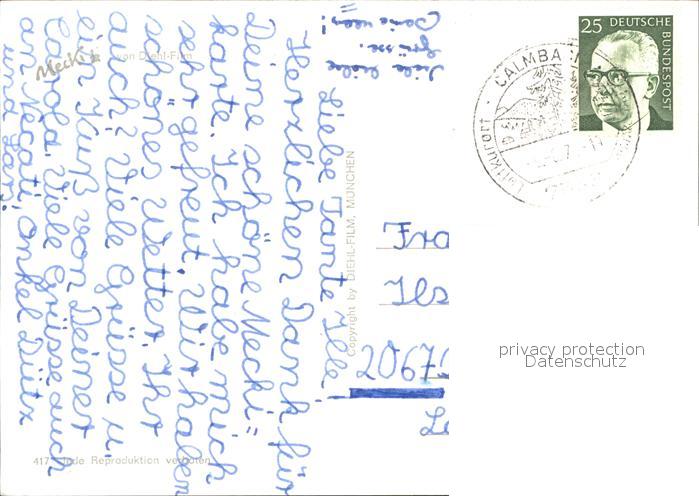 Liebe Tante Ilse!
Herzlichen Dank für
Deine schöne Mecki=
karte. Ich habe mich
sehr gefreut. Wir haben
schönes Wetter. Ihr
auch? Viele Grüsse u.
ein Kuß von Deiner
Carola. Viele Grüsse auch
an Onkel
und
Viele liebe
Grüsse.
Mecki
von Diehl-Film
Copyright by DIEHL-FILM, MÜNCHEN
417 Jede Reproduktion verboten
25 DEUTSCHE
BUNDESPOST
CALMBA
Luftkurort
Fra
Ils
2067
privacy protection
Datenschutz